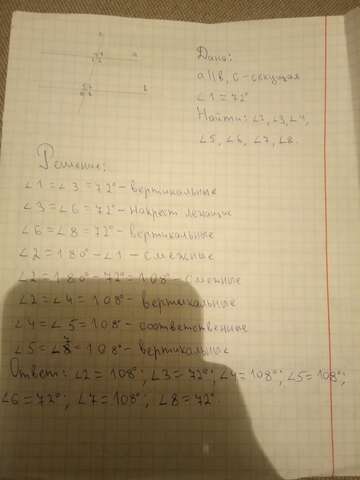 Дано:
a||b, c-секущая
∠1=72°
Найти: ∠2,∠3,∠4,
∠5, ∠6, ∠7, ∠8.
a
b
Решение:
∠1=∠3=72°- вертикальные
∠3=∠6=72°-накрест лежащие
∠6=∠8=72°- вертикальные
∠2=180°-∠1 - смежные
∠2=180°-72°=108°- смежные
∠2=∠4=108°- вертикальные
∠4=∠5=108°- соответственные
∠5=∠7=108°- вертикальные
Ответ: ∠2=108°; ∠3=72°; ∠4=108°; ∠5=108°;
∠6=72°; ∠7=108°; ∠8=72°.